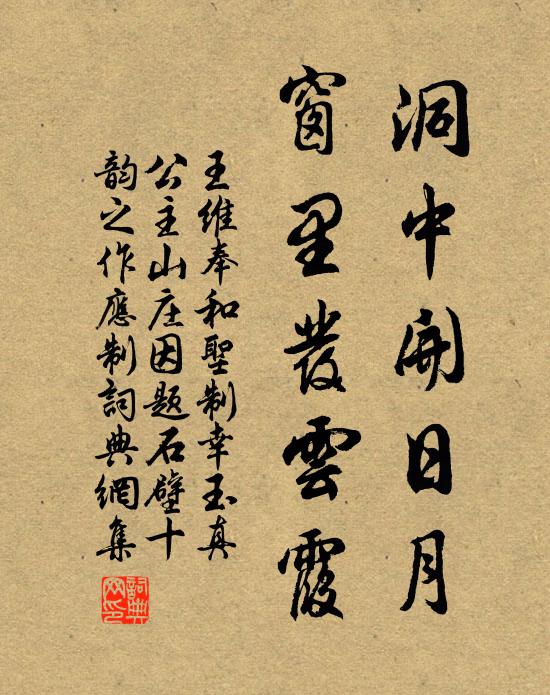 洞中開日月
窗里發雲霞
王維奉和聖制幸玉真
公主山庄因題石壁十
韵之作應制詞典網集
詞典網印